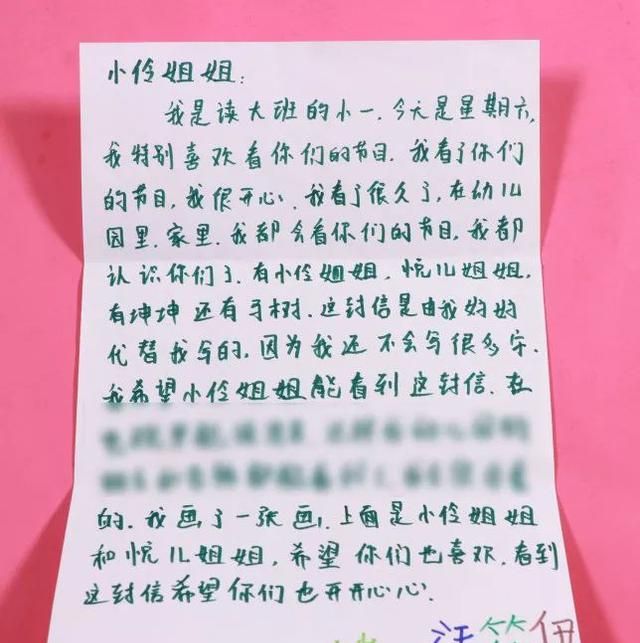 小伶姐姐:
我是读大班的小一.今天是星期六,
我特别喜欢看你们的节目.我看了你们
的节目,我很开心、我看了很久了,在幼儿
园里.家里.我都会看你们的节目,我都
认识你们了.有小伶姐姐,悦儿姐姐,
有坤坤还有子树.这封信是由我妈妈
代替我写的,因为我还不会写很多字.
我希望小伶姐姐能看到这封信.在
的.我画了一张画,上面是小伶姐姐
和悦儿姐姐,希望你们也喜欢.看到
这封信希望你们也开开心心.